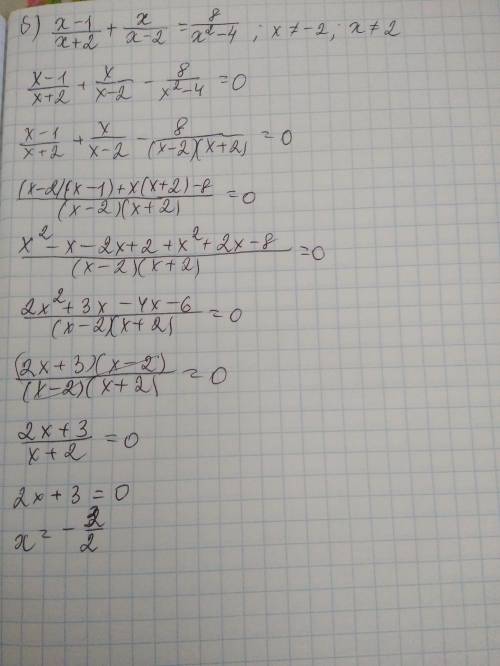 б) \frac{x-1}{x+2} + \frac{x}{x-2} = \frac{8}{x^2-4} ; x ≠ -2; x ≠ 2
\frac{x-1}{x+2} + \frac{x}{x-2} - \frac{8}{x^2-4} = 0
\frac{x-1}{x+2} + \frac{x}{x-2} - \frac{8}{(x-2)(x+2)} = 0
\frac{(x-2)(x-1)+x(x+2)-8}{(x-2)(x+2)} = 0
\frac{x^2-x-2x+2+x^2+2x-8}{(x-2)(x+2)} = 0
\frac{2x^2+3x-4x-6}{(x-2)(x+2)} = 0
\frac{(2x+3)(x-2)}{(x-2)(x+2)} = 0
\frac{2x+3}{x+2} = 0
2x+3=0
x = -\frac{3}{2}